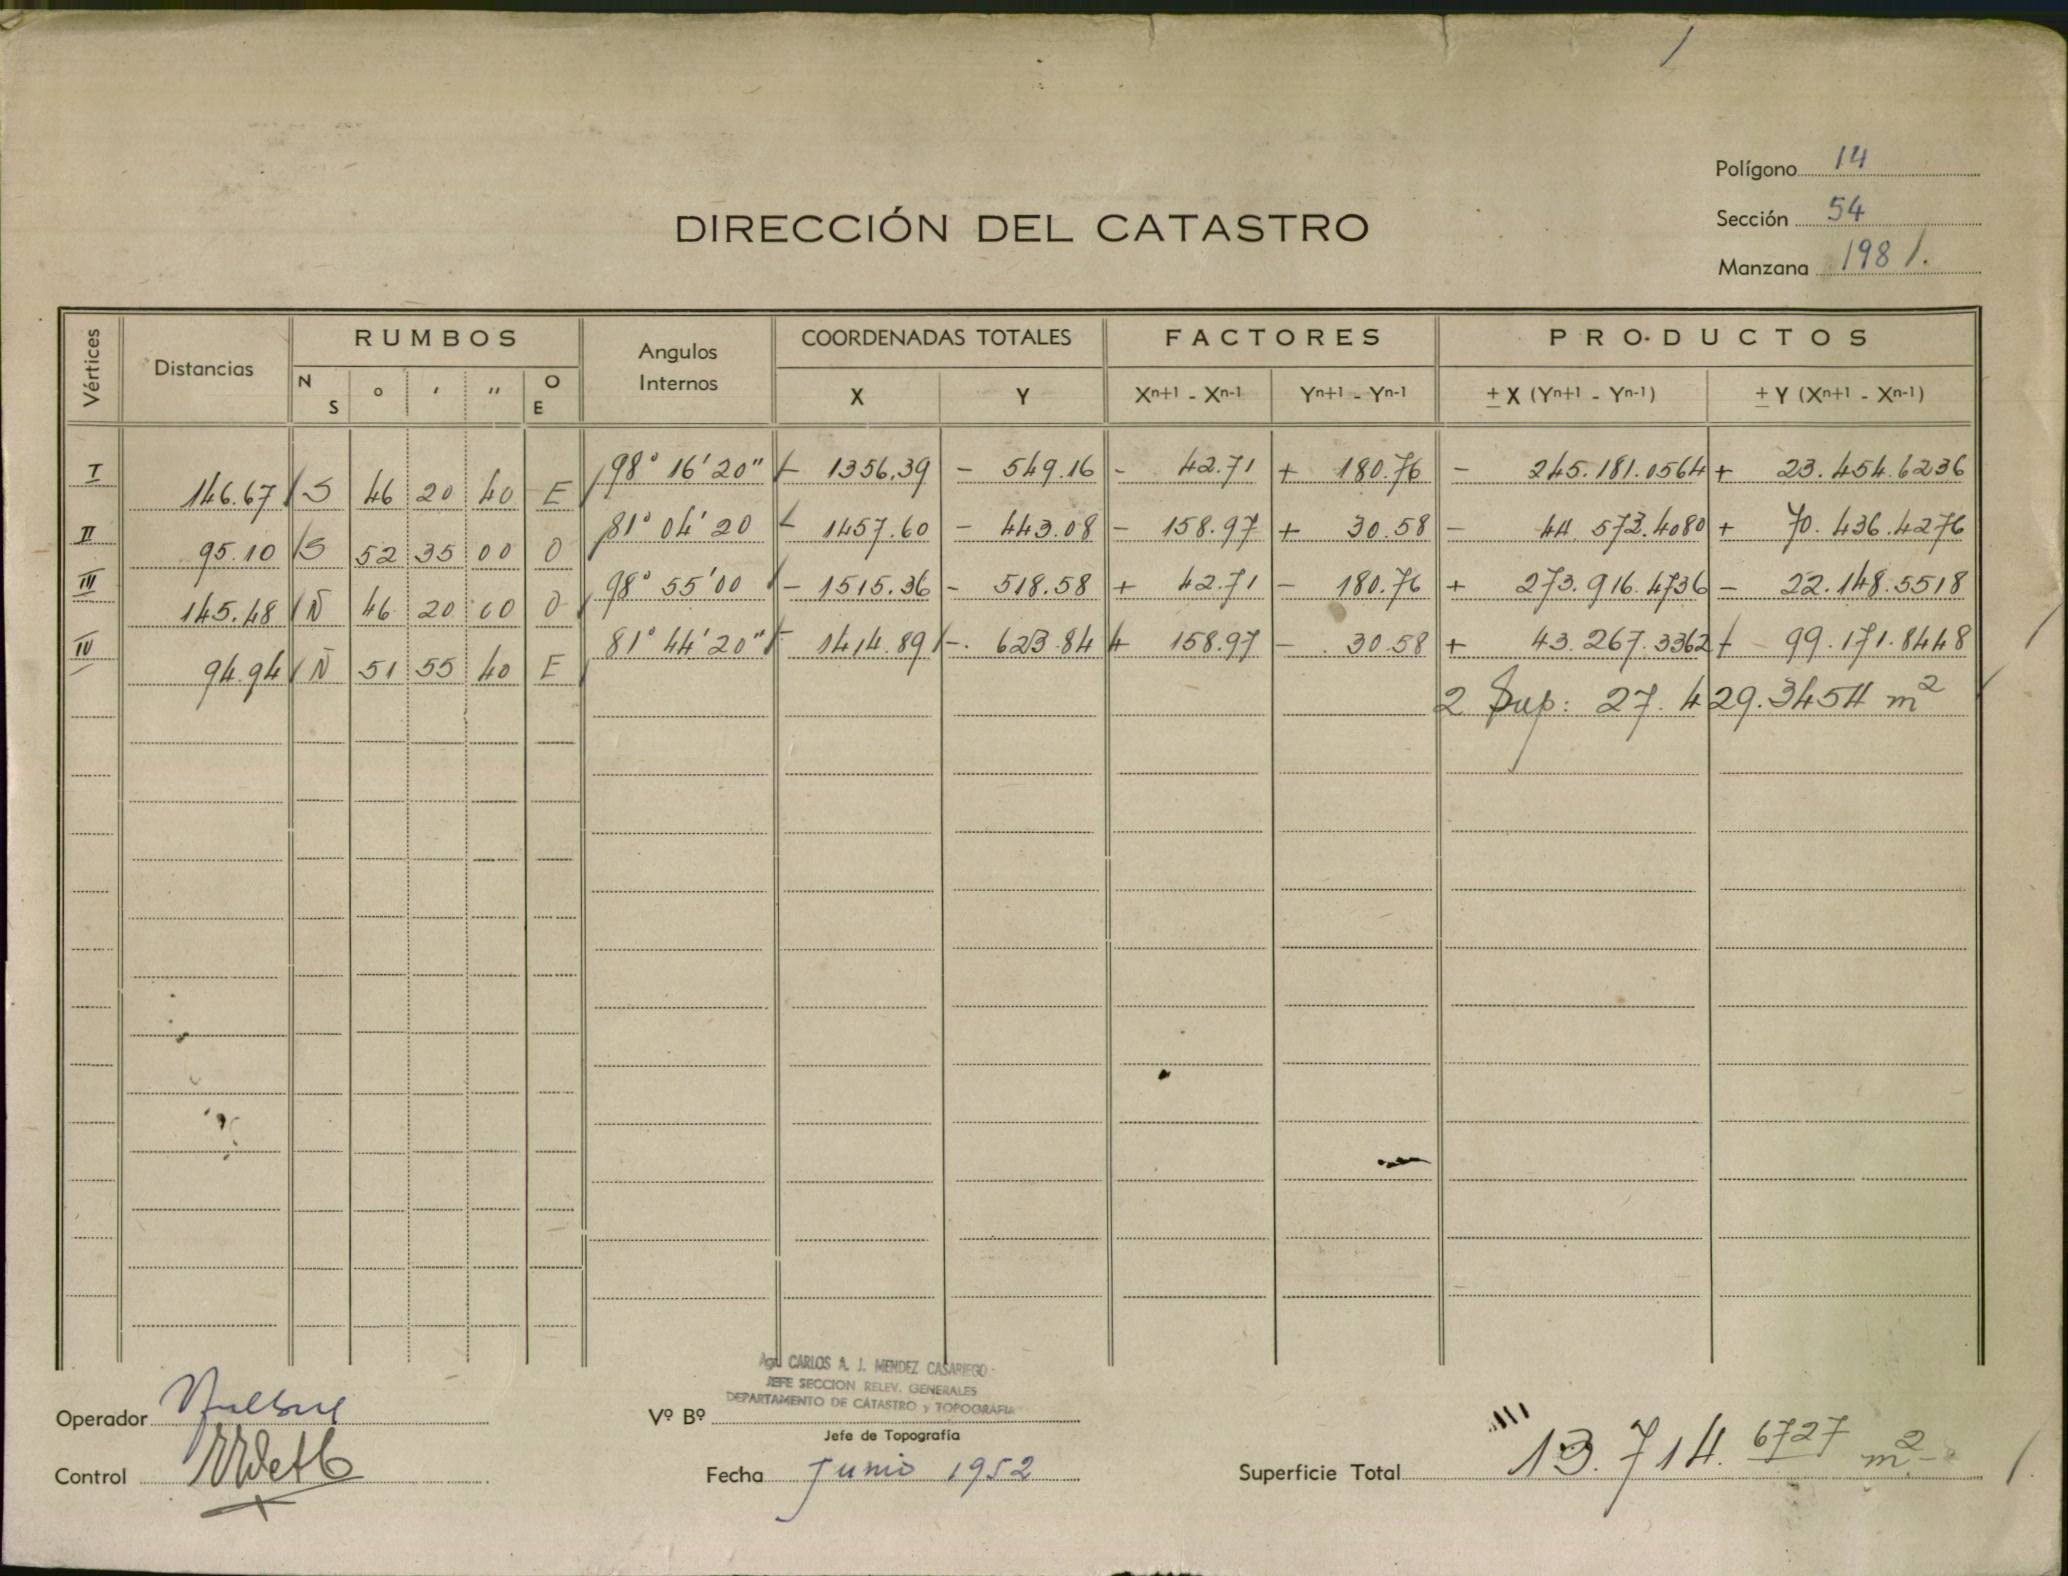 Polígono 14
Sección 54
Manzana 198 1.
DIRECCIÓN DEL CATASTRO
Vértices Distancias RUMBOS Angulos Internos COORDENADAS TOTALES FACTORES PRODUCTOS
N S ° ' " O E X Y Xn+1 - Xn-1 Yn+1 - Yn-1 ± X (Yn+1 - Yn-1) ± Y (Xn+1 - Xn-1)
I 98° 16' 20" - 1356.39 - 549.16 - 42.71 + 180.76 - 245.181.0564 + 23.454.6236
146.67 S 46 20 40 E
II 81° 04' 20 - 1457.60 - 443.08 - 158.97 + 30.58 - 44.573.4080 + 70.436.4276
95.10 S 52 35 00 O
III 98° 55' 00 - 1515.36 - 518.58 + 42.71 - 180.76 + 273.916.4736 - 22.148.5518
145.48 N 46 20 00 O
IV 81° 44' 20" - 1414.89 - 623.84 + 158.97 - 30.58 + 43.267.3362 + 99.171.8448
94.94 N 51 55 40 E
2 Sup: 27.429.3454 m2
Agr. CARLOS A. J. MENDEZ CASARIEGO
JEFE SECCION RELEV. GENERALES
DEPARTAMENTO DE CATASTRO y TOPOGRAFIA
Operador
Vº Bº
Jefe de Topografía
Control
Fecha Junio 1952
Superficie Total 13.714.6727 m2